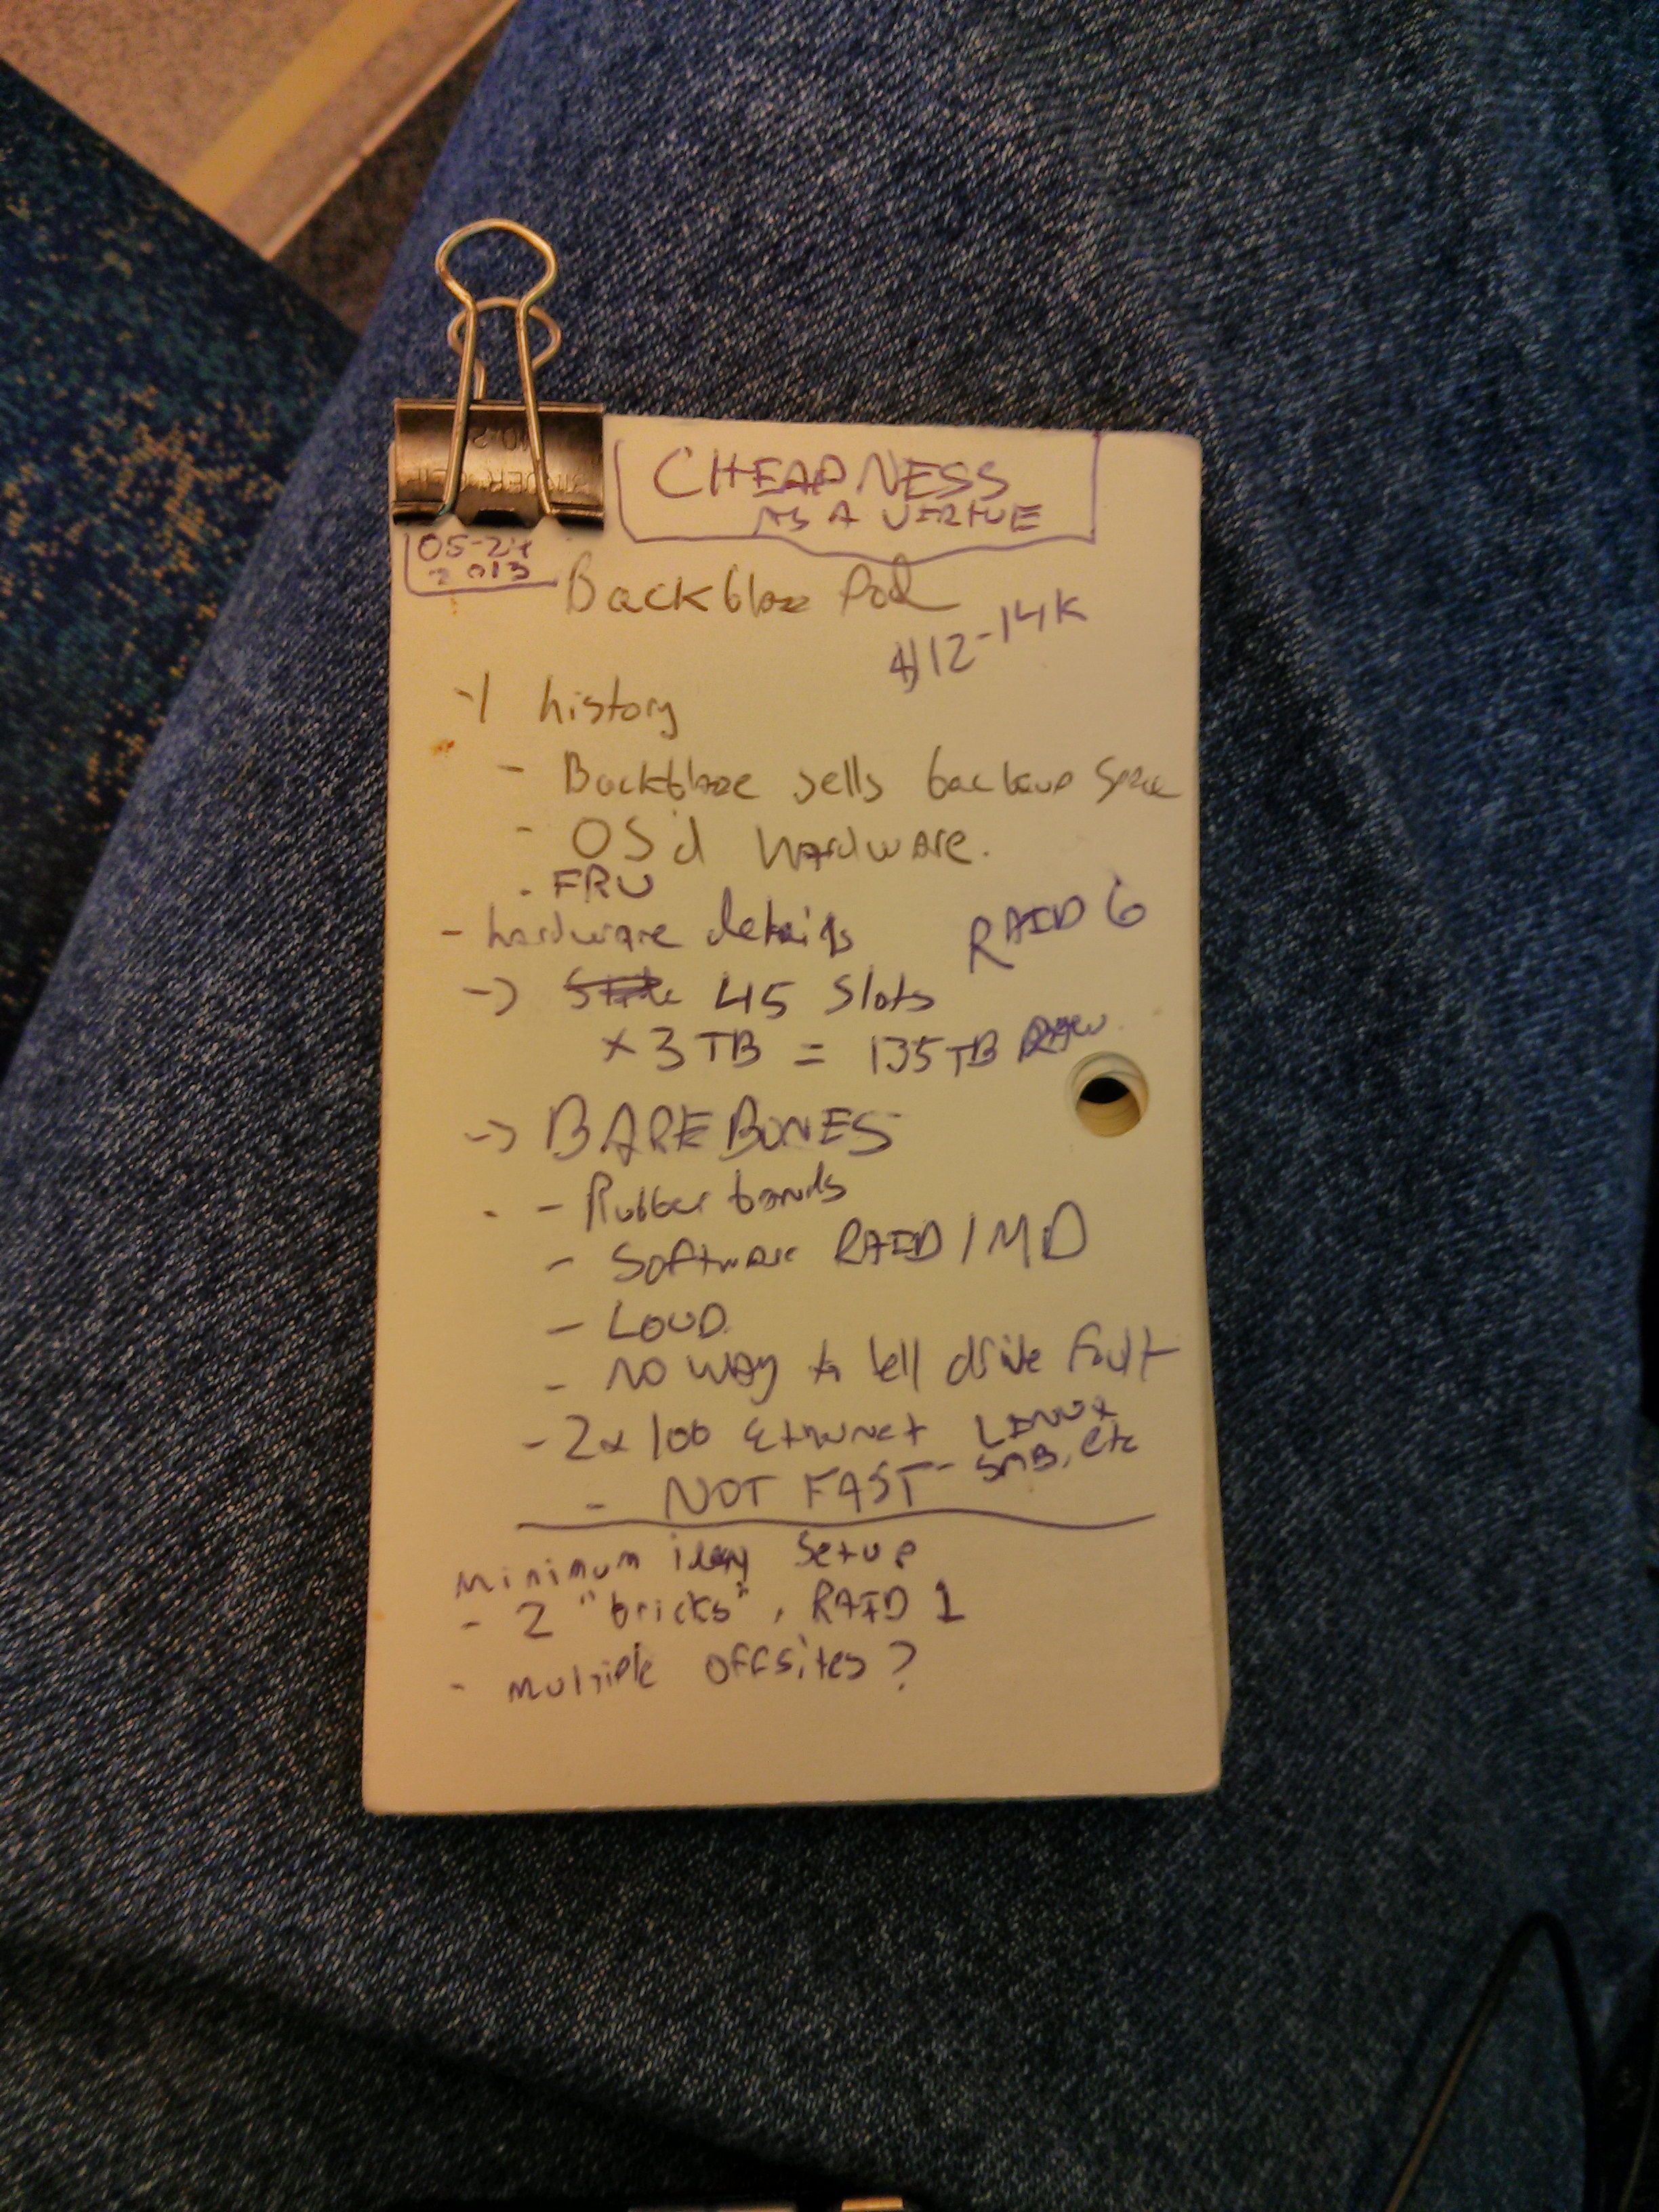 CHEAPNESS
AS A VIRTUE
05-24
2013
Backblaze Pod
$12-14K
history
- Backblaze sells backup space
- OS'd hardware.
- FRU
- hardware details
RAID 6
-> 45 slots
x 3TB = 135TB RAW
-> BAREBONES
- Rubber bands
- Software RAID / MD
- LOUD
- NO WAY to tell drive fault
- 2x 100 Ethernet
LINUX
SMB, etc
- NOT FAST
Minimum Setup
- 2 "bricks", RAID 1
- multiple offsites?